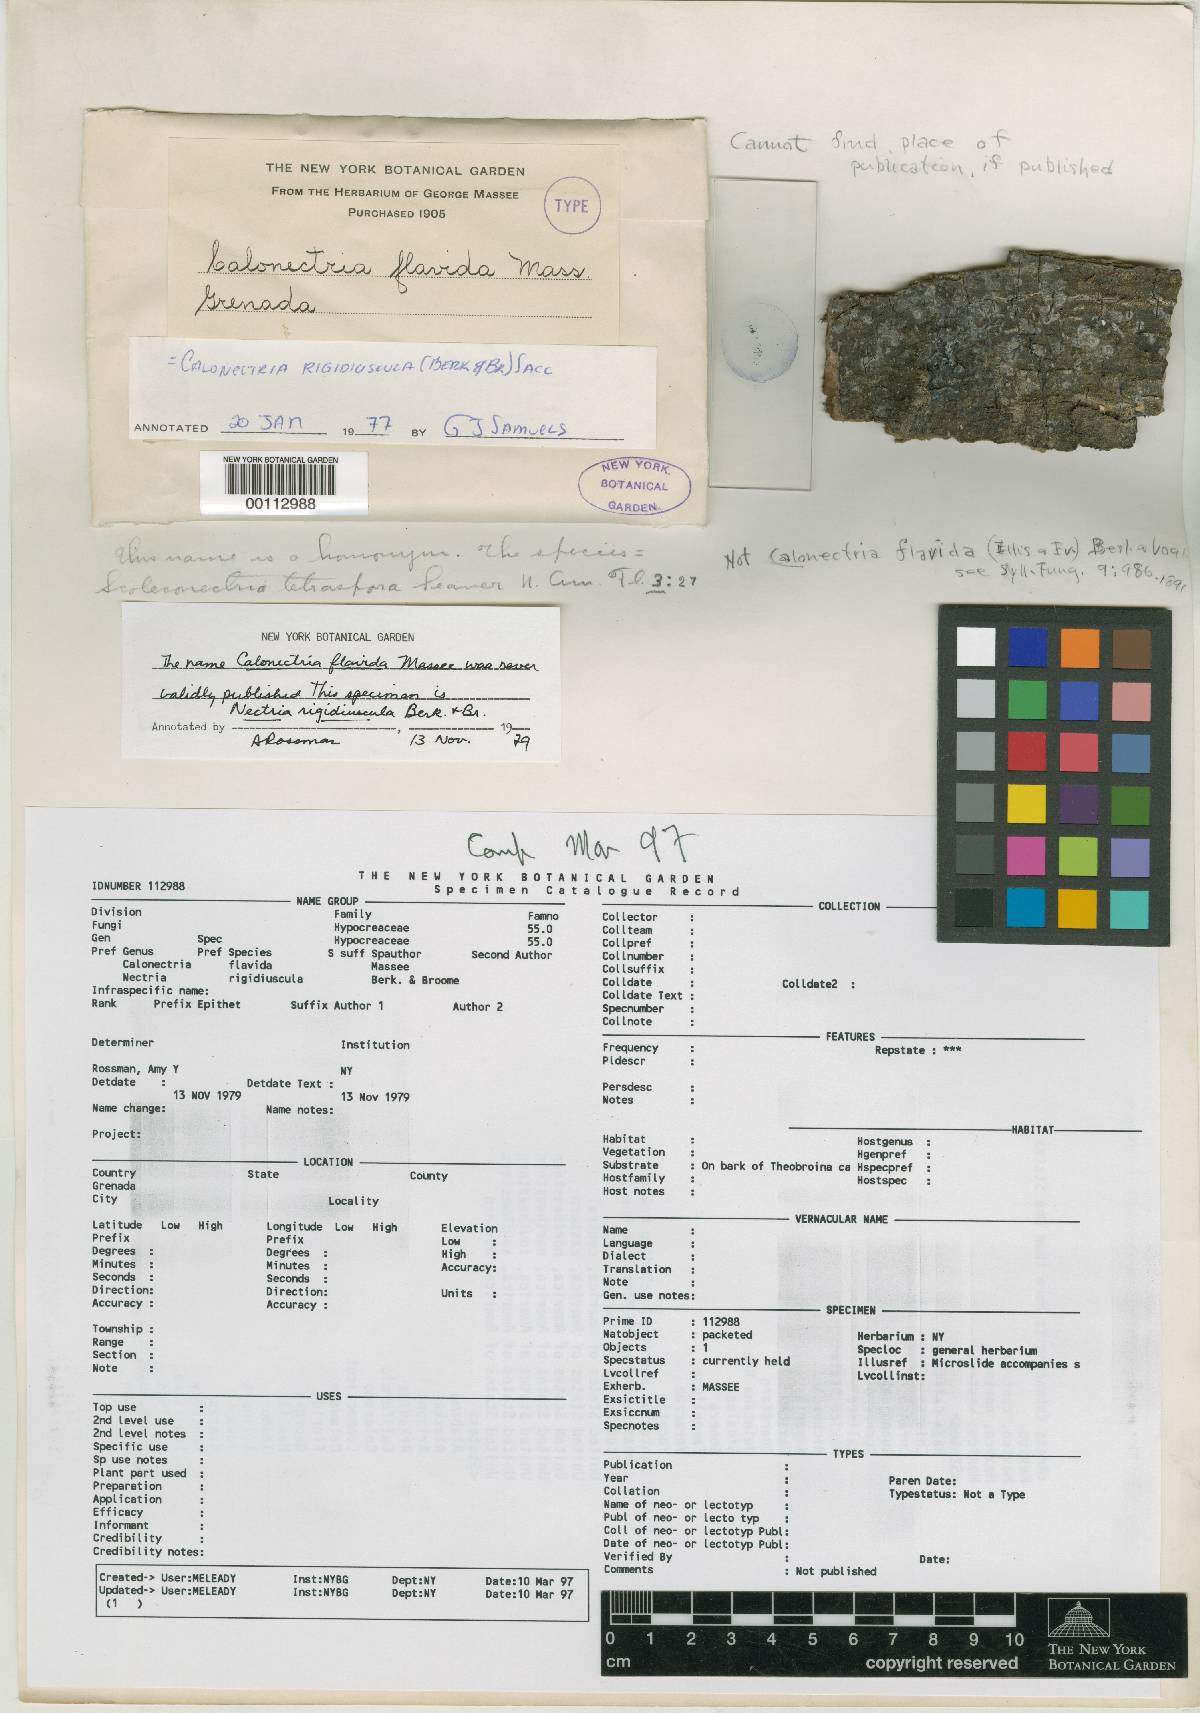 Cannot find place of
publication, if published
THE NEW YORK BOTANICAL GARDEN
FROM THE HERBARIUM OF GEORGE MASSEE
PURCHASED 1905
TYPE
Calonectria flavida Mass.
Grenada
= CALONECTRIA RIGIDIUSCULA (BERK & BR) SACC
ANNOTATED 20 JAN 1977 BY G J SAMUELS
NEW YORK BOTANICAL GARDEN
00112988
NEW YORK
BOTANICAL
GARDEN
This name is a homonym. The species =
Scoleconectria tetraspora Seaver N. Am. Fl. 3: 27
Not Calonectria flavida (Ellis & Ev) Berl. & Vogl
see Syll. Fung. 9: 986. 1891
NEW YORK BOTANICAL GARDEN
The name Calonectria flavida Massee was never
validly published This specimen is
Nectria rigidiuscula Berk. & Br.
Annotated by ARossman, 13 Nov. 1979
Comp Mar 97
THE NEW YORK BOTANICAL GARDEN
Specimen Catalogue Record
IDNUMBER 112988
NAME GROUP
Division Family Famno
Fungi Hypocreaceae 55.0
Gen Spec Hypocreaceae 55.0
Pref Genus Pref Species S suff Spauthor Second Author
Calonectria flavida Massee
Nectria rigidiuscula Berk. & Broome
Infraspecific name:
Rank Prefix Epithet Suffix Author 1 Author 2
Determiner Institution
Rossman, Amy Y NY
Detdate : Detdate Text :
13 NOV 1979 13 Nov 1979
Name change: Name notes:
Project:
LOCATION
Country State County
Grenada
City Locality
Latitude Low High Longitude Low High Elevation
Prefix Prefix Low :
Degrees : Degrees : High :
Minutes : Minutes : Accuracy:
Seconds : Seconds :
Direction: Direction: Units :
Accuracy : Accuracy :
Township :
Range :
Section :
Note :
USES
Top use :
2nd level use :
2nd level notes :
Specific use :
Sp use notes :
Plant part used :
Preparation :
Application :
Efficacy :
Informant :
Credibility :
Credibility notes:
Created-> User:MELEADY Inst:NYBG Dept:NY Date:10 Mar 97
Updated-> User:MELEADY Inst:NYBG Dept:NY Date:10 Mar 97
(1 )
COLLECTION
Collector :
Collteam :
Collpref :
Collnumber :
Collsuffix :
Colldate : Colldate2 :
Colldate Text :
Specnumber :
Collnote :
FEATURES
Frequency : Repstate : ***
Pldescr :
Persdesc :
Notes :
HABITAT
Habitat : Hostgenus :
Vegetation : Hgenpref :
Substrate : On bark of Theobroina ca Hspecpref :
Hostfamily : Hostspec :
Host notes :
VERNACULAR NAME
Name :
Language :
Dialect :
Translation :
Note :
Gen. use notes:
SPECIMEN
Prime ID : 112988
Natobject : packeted Herbarium : NY
Objects : 1 Specloc : general herbarium
Specstatus : currently held Illusref : Microslide accompanies s
Lvcollref : Lvcollinst:
Exherb. : MASSEE
Exsictitle :
Exsiccnum :
Specnotes :
TYPES
Publication :
Year : Paren Date:
Collation : Typestatus: Not a Type
Name of neo- or lectotyp :
Publ of neo- or lecto typ :
Coll of neo- or lectotyp Publ:
Date of neo- or lectotyp Publ:
Verified By : Date:
Comments : Not published
0 1 2 3 4 5 6 7 8 9 10
cm copyright reserved
THE NEW YORK
BOTANICAL GARDEN